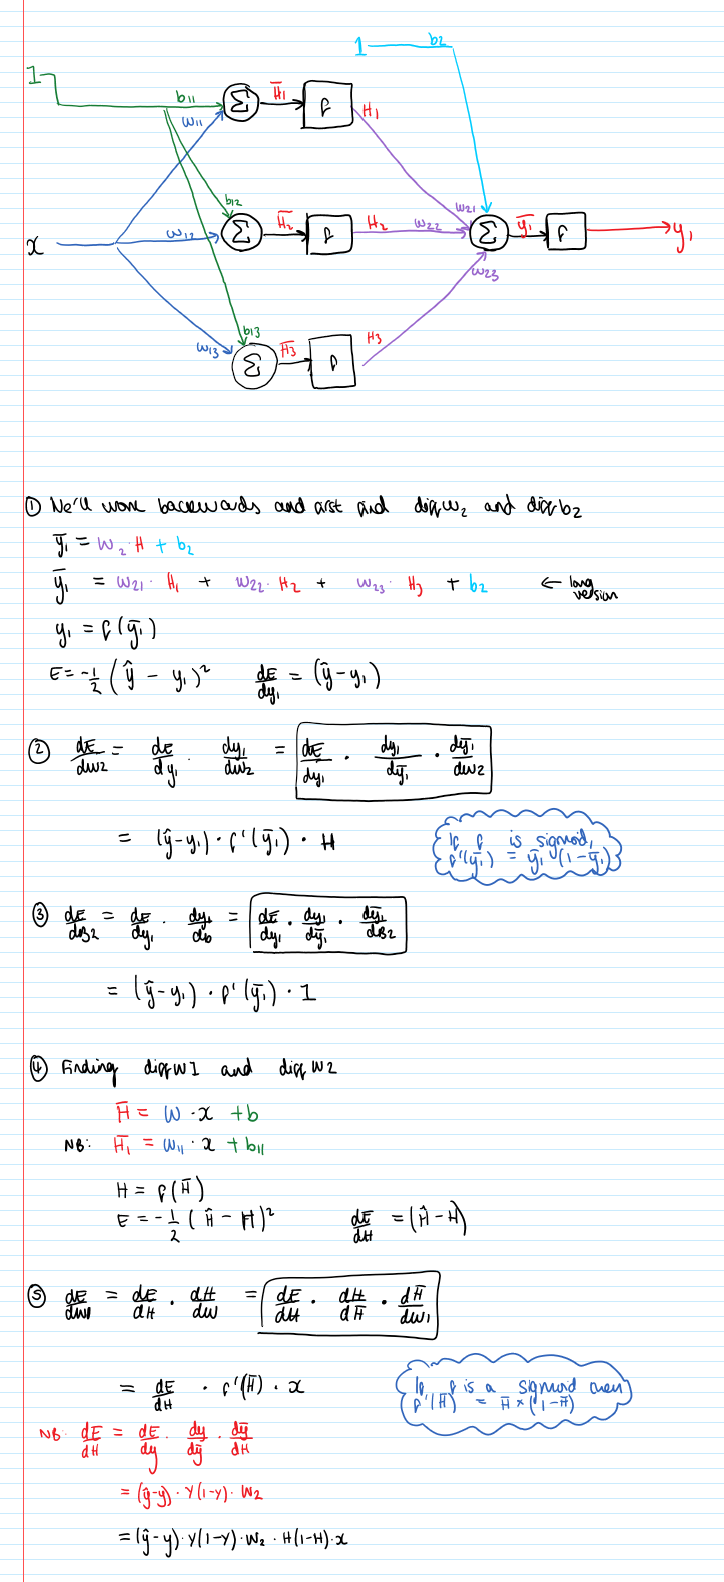 1 b2
1 b11 Σ H̅1 f H1
w11
b12 w21
x w12 Σ H̅2 f H2 w22 Σ y̅1 f y1
w23
b13
w13 Σ H̅3 f H3
① We'll work backwards and first find diffw2 and diffb2
y̅1 = w2·H + b2
y̅1 = w21· H1 + w22· H2 + w23· H3 + b2 ← long version
y1 = f(y̅1)
E = -1/2 (ŷ - y1)² dE/dy1 = (ŷ-y1)
② dE/dw2 = dE/dy1 · dy1/dw2 = dE/dy1 · dy1/dy̅1 · dy̅1/dw2
= (ŷ-y1) · f'(y̅1) · H
If f is sigmoid,
f'(y̅1) = y̅1 (1-y̅1)
③ dE/dB2 = dE/dy1 · dy1/db = dE/dy1 · dy1/dy̅1 · dy̅1/dB2
= (ŷ-y1) · f'(y̅1) · 1
④ Finding diffW1 and diffW2
H̅ = W·x + b
NB: H̅1 = w11·x + b11
H = f(H̅)
E = -1/2 (Ĥ - H)² dE/dH = (Ĥ-H)
⑤ dE/dw1 = dE/dH · dH/dw = dE/dH · dH/dH̅ · dH̅/dw1
= dE/dH · f'(H̅) · x
If f is a sigmoid then
f'(H̅) = H̅ × (1-H̅)
NB: dE/dH = dE/dy · dy/dy̅ · dy̅/dH
= (ŷ-y) · y(1-y) · W2
= (ŷ-y) · y(1-y) · W2 · H(1-H)·x